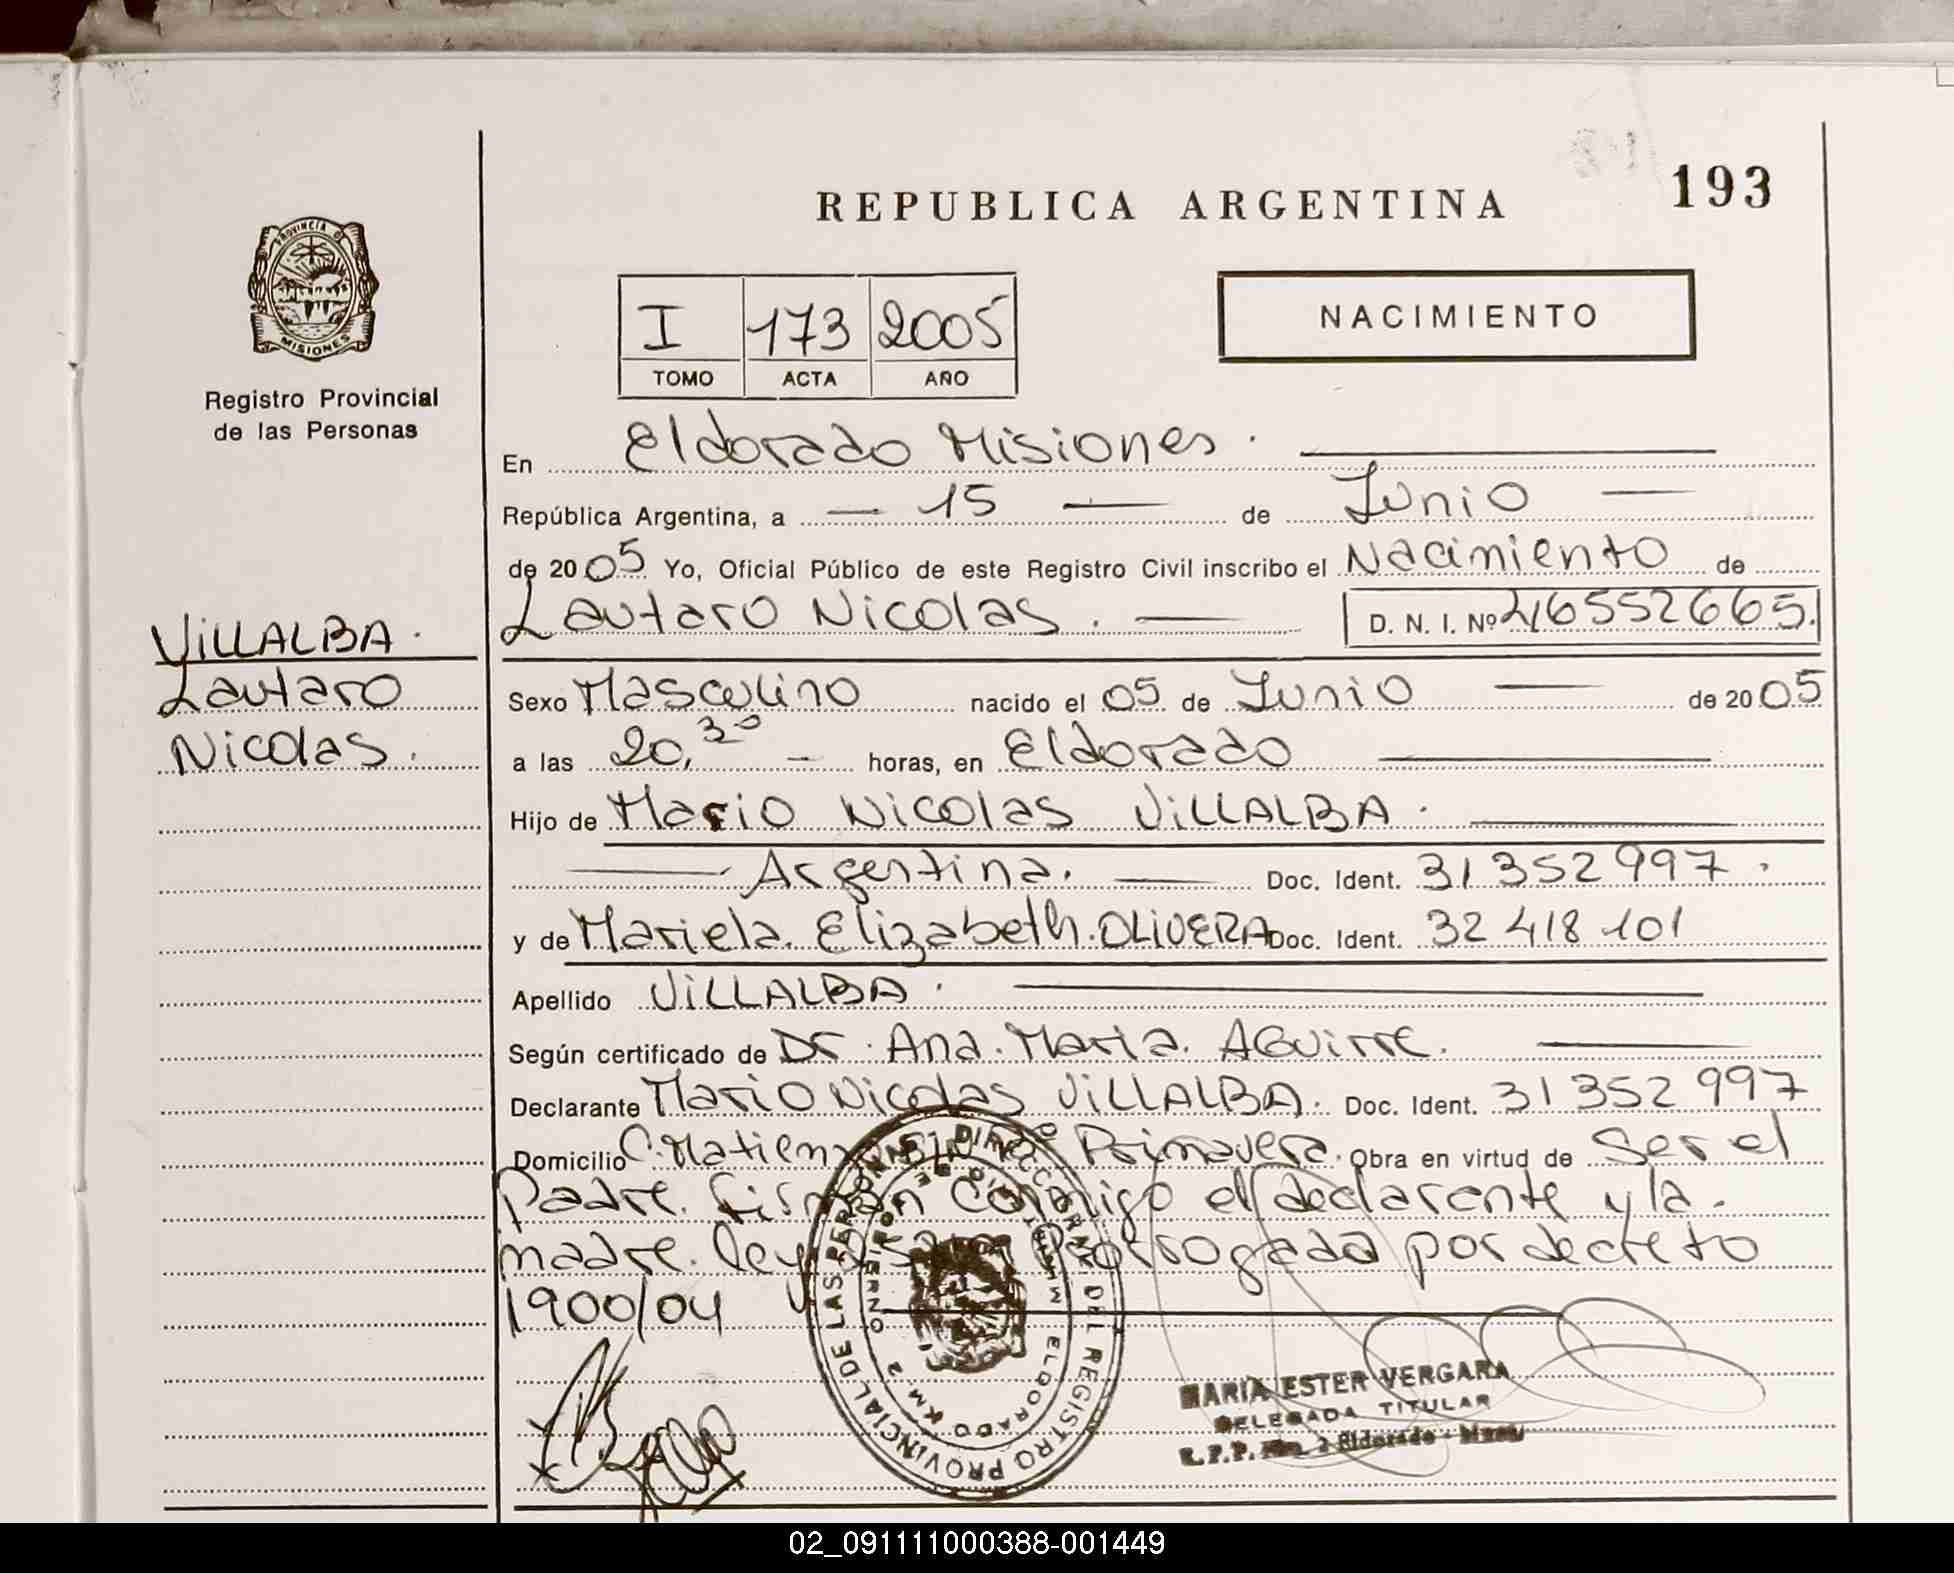 REPUBLICA ARGENTINA
193
PROVINCIA DE
MISIONES
Registro Provincial
de las Personas
I 173 2005
TOMO ACTA AÑO
NACIMIENTO
En Eldorado Misiones.
República Argentina, a — 15 — de Junio —
de 2005 Yo, Oficial Público de este Registro Civil inscribo el Nacimiento de
Lautaro Nicolas. — D. N. I. Nº 46552665.
VILLALBA.
Lautaro
Nicolas.
Sexo Masculino nacido el 05 de Junio — de 2005
a las 20,30 — horas, en Eldorado
Hijo de Mario Nicolas VILLALBA.
— Argentina. — Doc. Ident. 31 352 997.
y de Mariela Elizabeth OLIVERA Doc. Ident. 32 418 101
Apellido VILLALBA.
Según certificado de Dr. Ana Maria AGUIRRE.
Declarante Mario Nicolas VILLALBA. Doc. Ident. 31 352 997
Domicilio C. Primavera. Obra en virtud de Ser el
Padre. Firman conmigo el declarante y la
madre. ley Prorrogada por decreto
1900/04
DIRECCION DEL REGISTRO PROVINCIAL DE LAS PERSONAS
ELDORADO KM. 2
MARIA ESTER VERGARA
DELEGADA TITULAR
R.P.P. Km. 2 Eldorado - Mnes
02_091111000388-001449